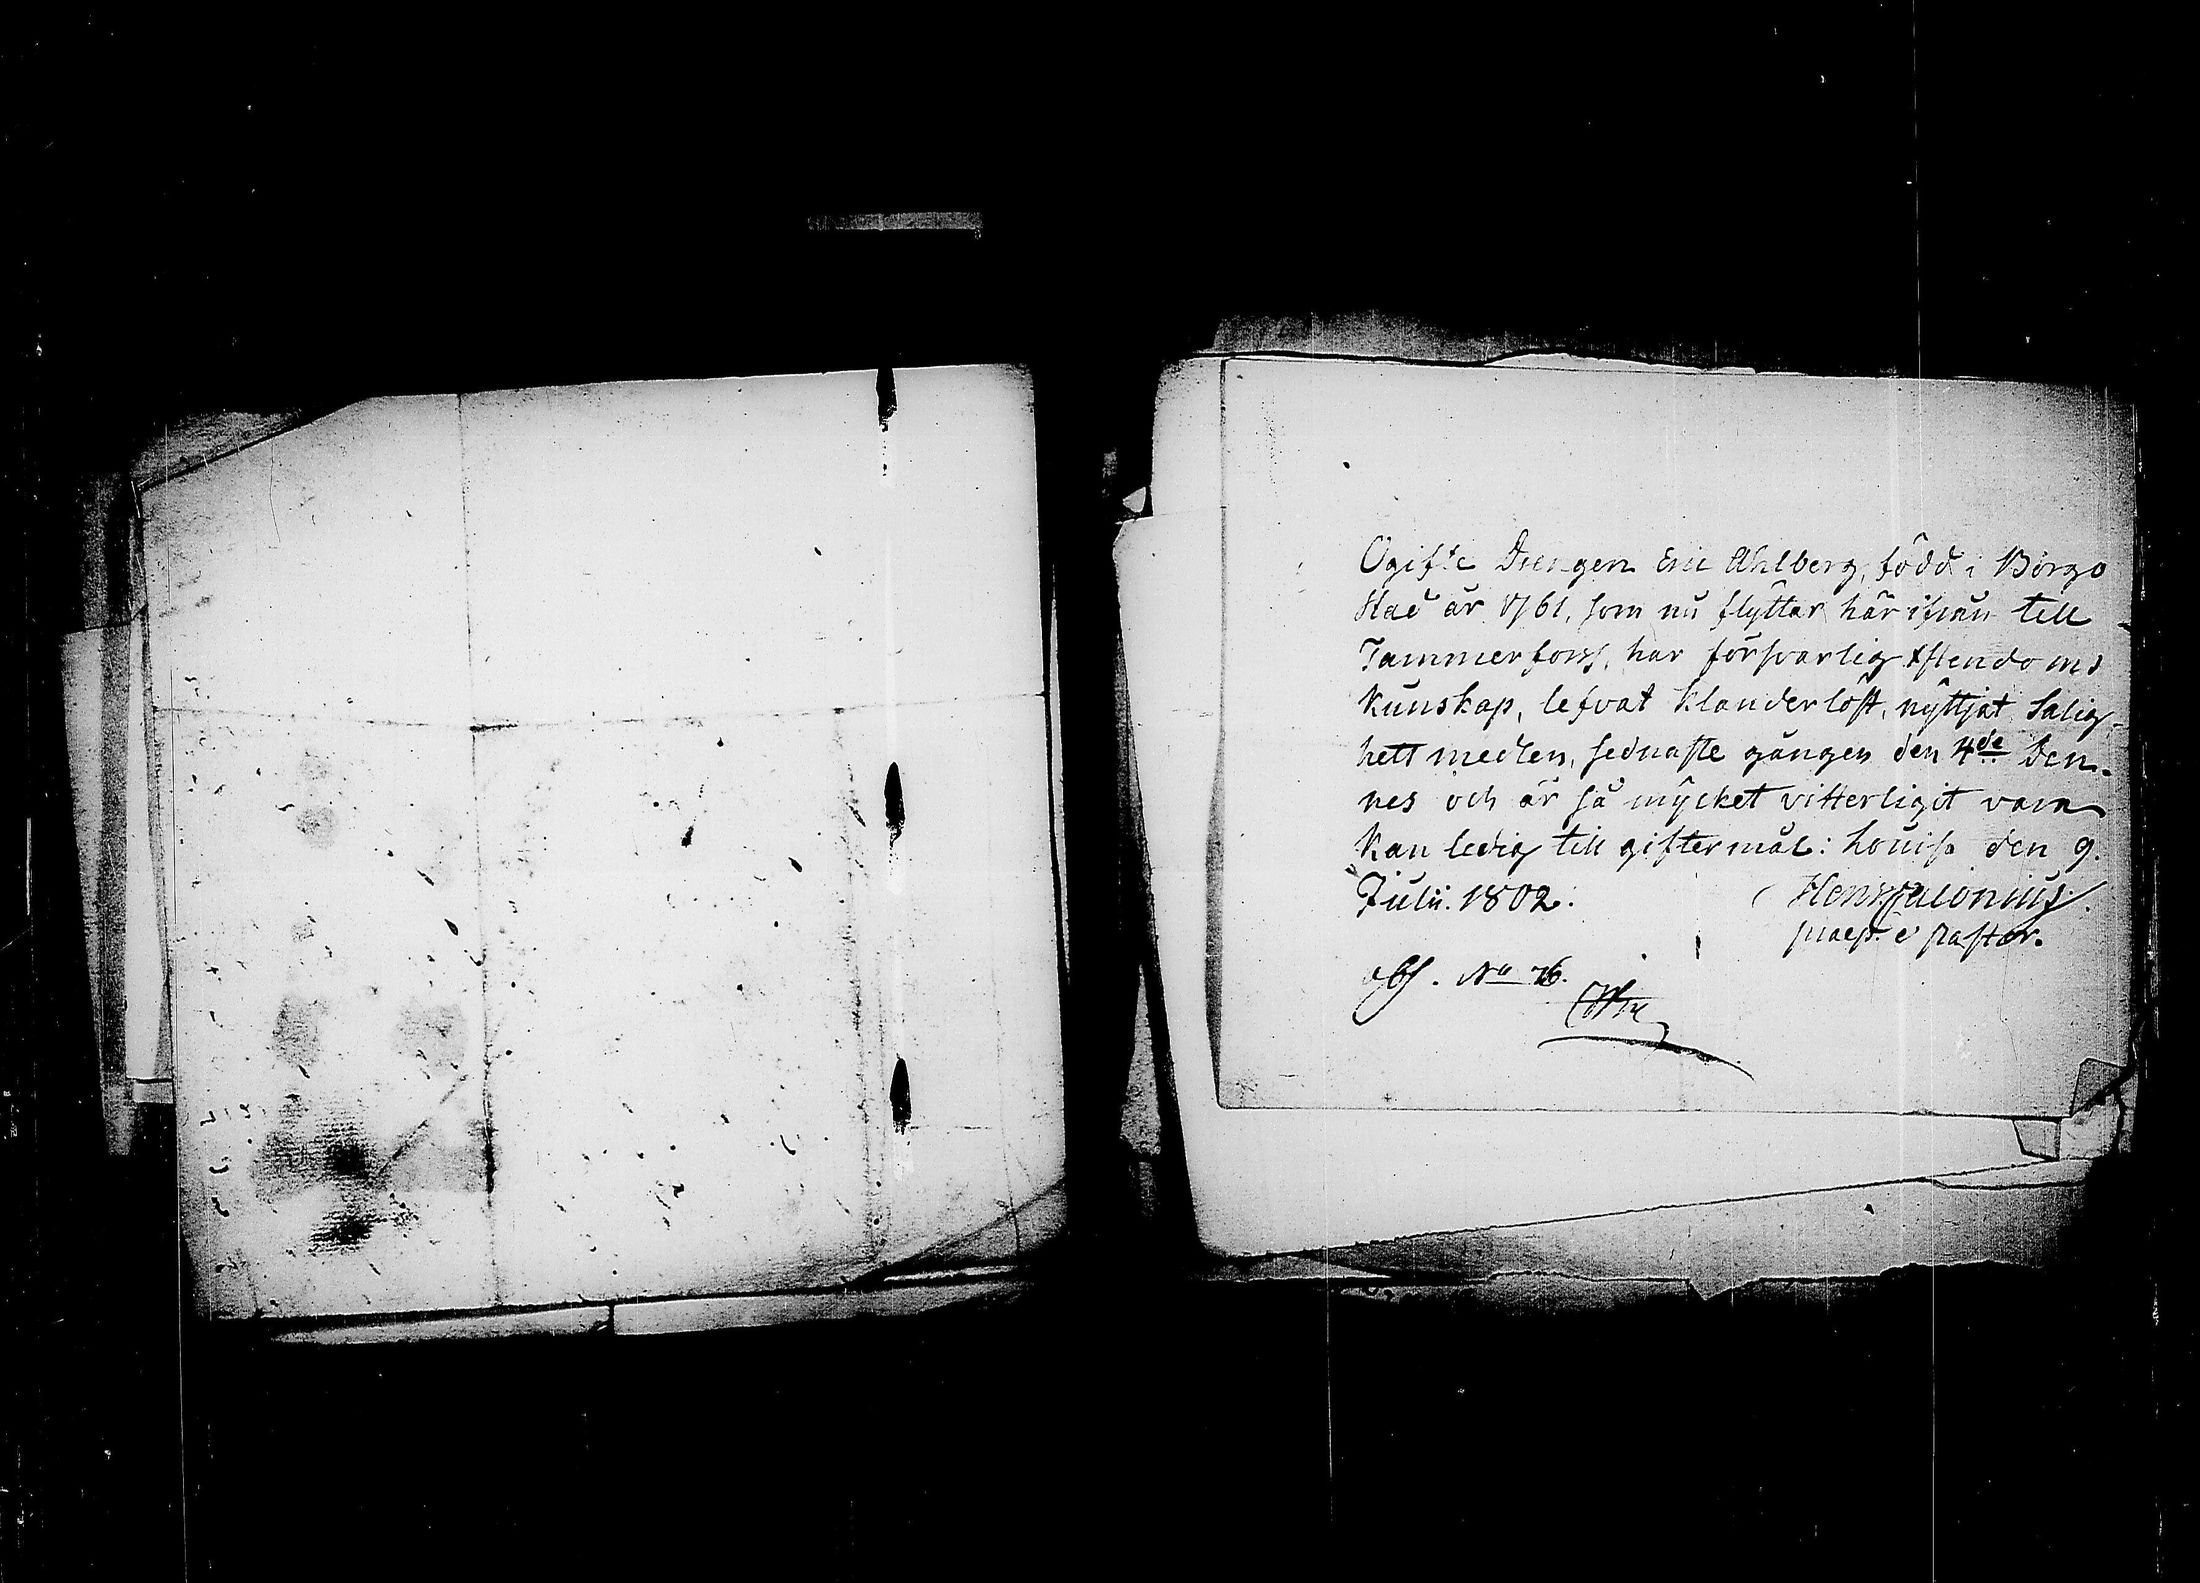 Ogifte Drengen Eric Ahlberg, född i Borgo
Stad år 1761, som nu flyttar här ifrån till
Tammerforss, har försvarlig Xstendoms
kunskap, lefvat klanderlöst, nyttjat Salig-
hett medlen, sednaste gången den 4de Den-
nes och är så mycket vitterligit vara
kan ledig till giftermål: Louisa den 9.
Julii. 1802.
Henr Salonius.
praep. e pastor.
No 76.